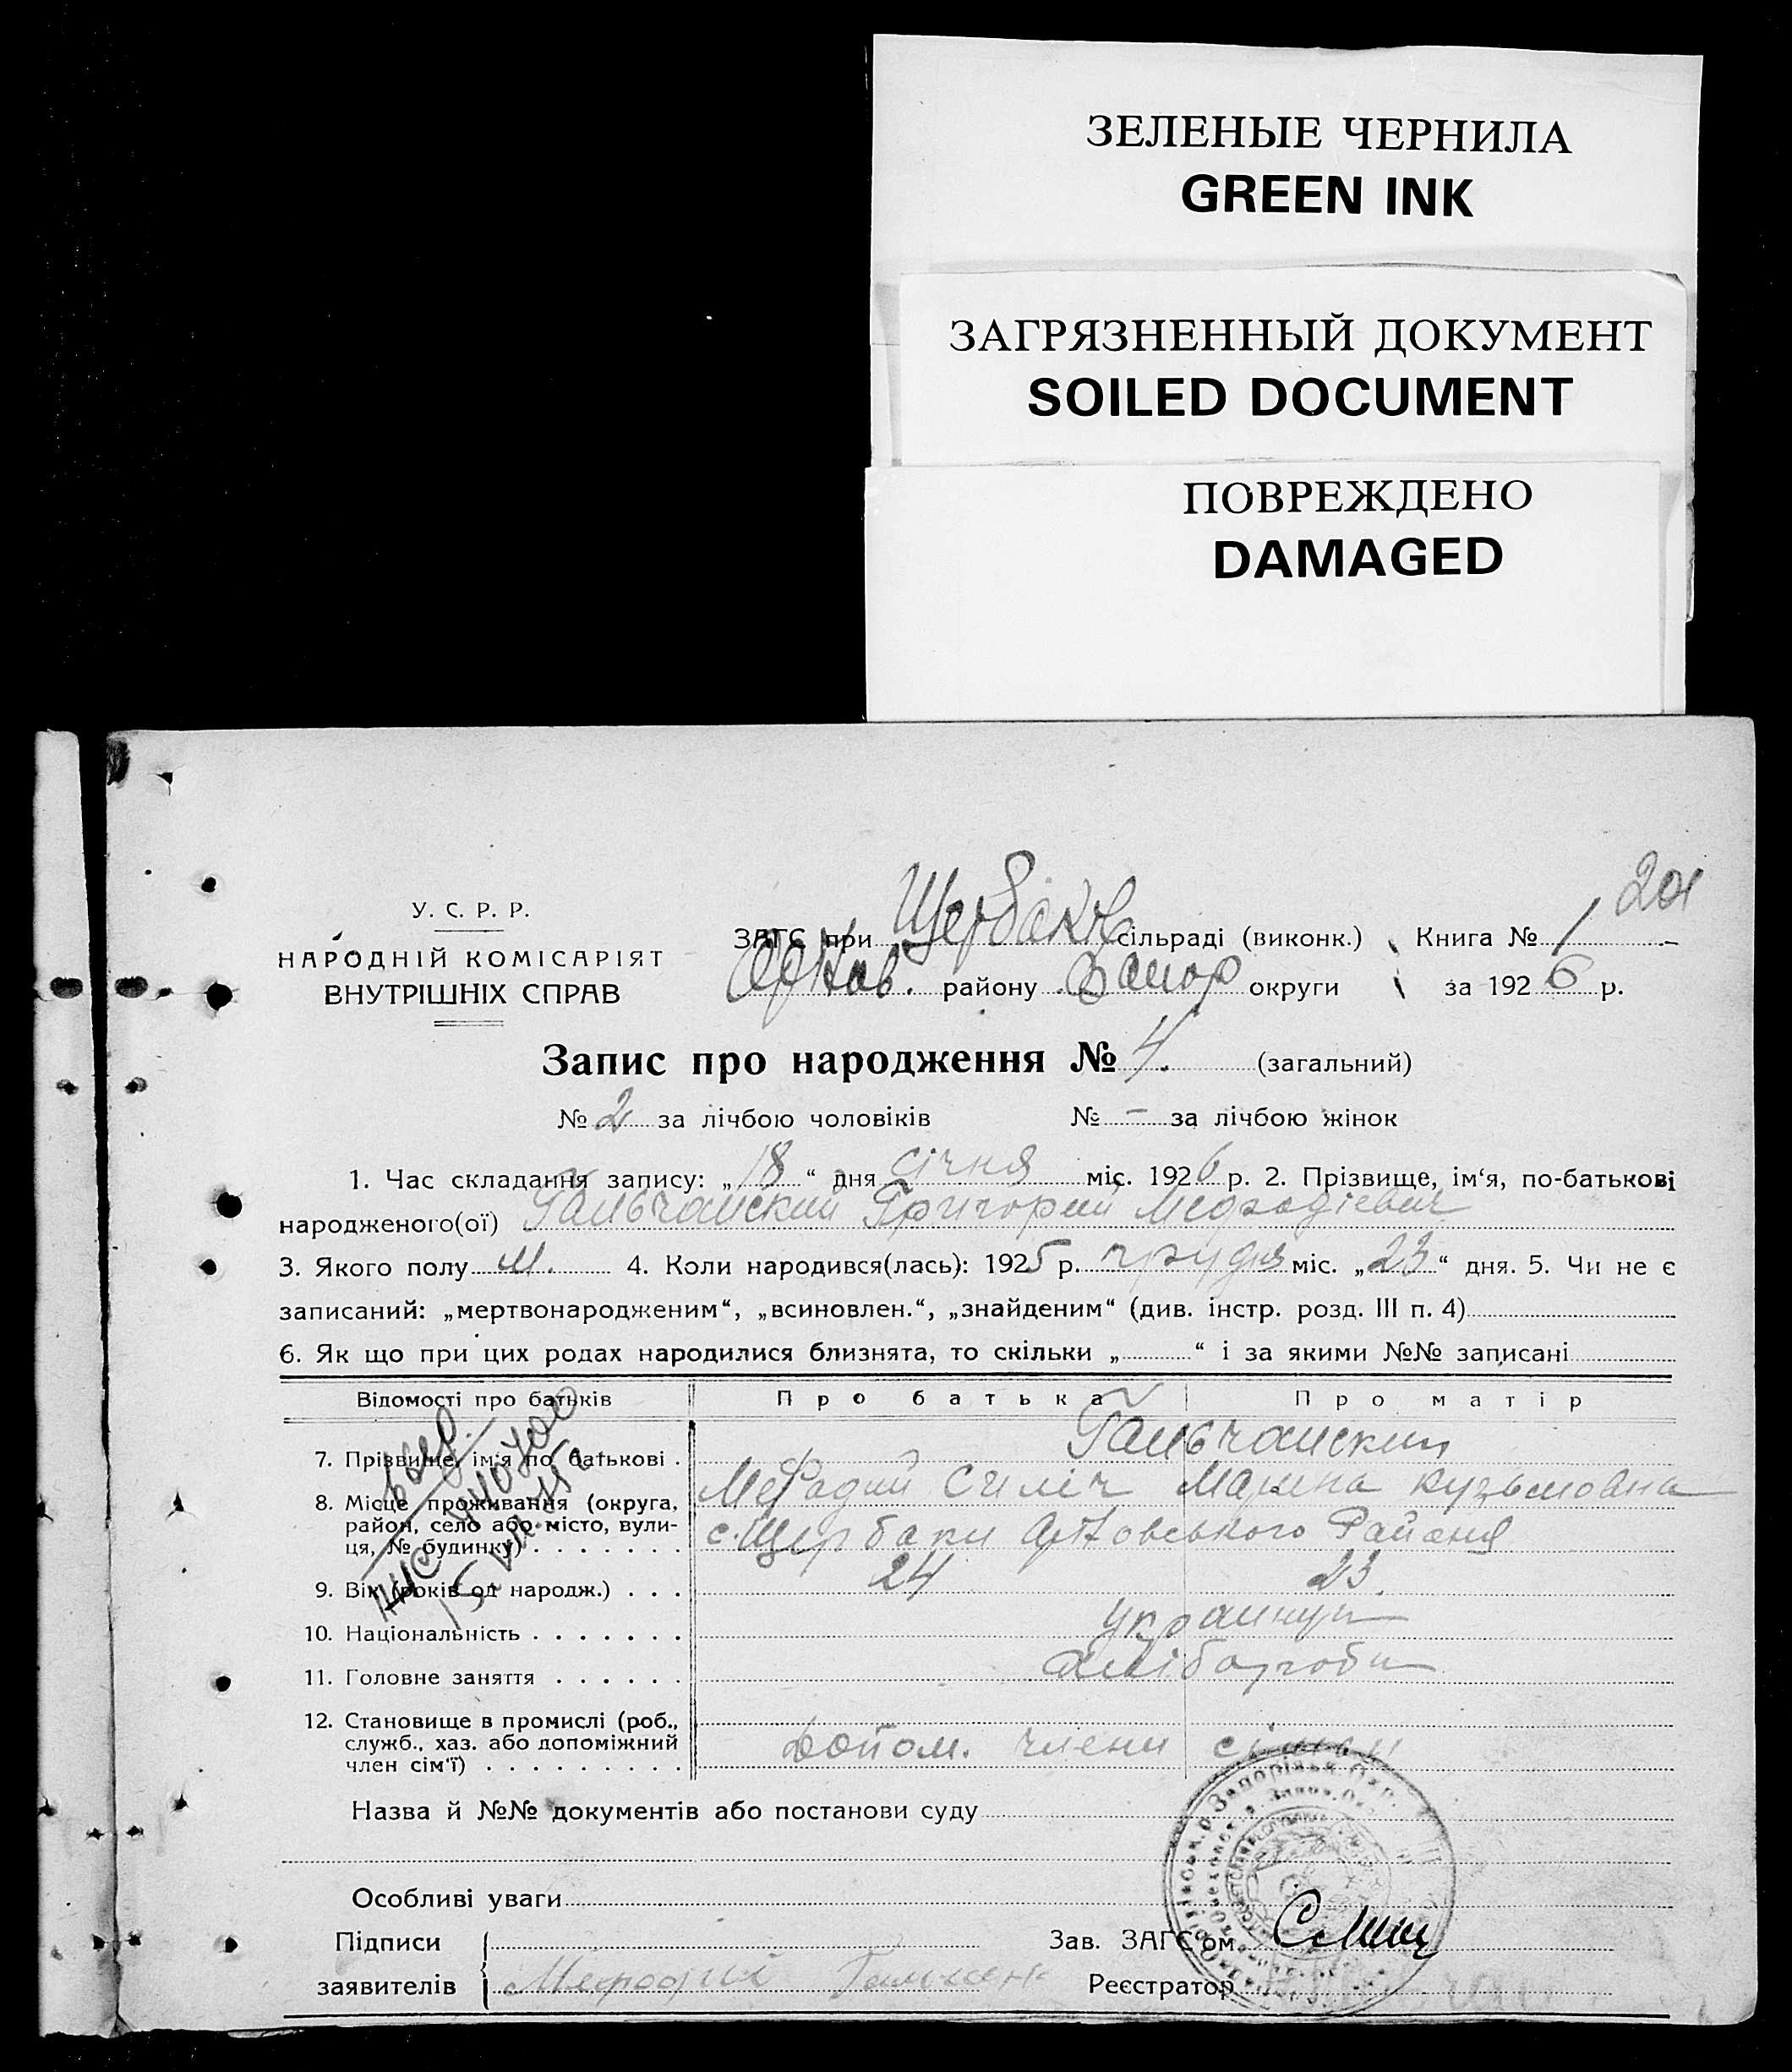 ЗЕЛЕНЫЕ ЧЕРНИЛА
GREEN INK
ЗАГРЯЗНЕННЫЙ ДОКУМЕНТ
SOILED DOCUMENT
ПОВРЕЖДЕНО
DAMAGED
201
У. С. Р. Р.
НАРОДНІЙ КОМІСАРІЯТ
ВНУТРІШНІХ СПРАВ
ЗАГС при Щербаків сільраді (виконк.) Книга № 1
району Запор округи за 1926 р.
Запис про народження № 4. (загальний)
№ 2 за лічбою чоловіків № – за лічбою жінок
1. Час складання запису: „18“ дня січня міс. 1926 р. 2. Прізвище, ім‘я, по-батькові
народженого(ої) Гальчанский Григорий Мефодієвич
3. Якого полу ч. 4. Коли народився(лась): 1925 р. грудня міс. „23“ дня. 5. Чи не є
записаний: „мертвонародженим“, „всиновлен.“, „знайденим“ (див. інстр. розд. III п. 4)
6. Як що при цих родах народилися близнята, то скільки „ “ і за якими №№ записані
Відомості про батьків Про батька Про матір
Гальчанский
7. Прізвище, ім‘я по батькові .
Мефодий Силіч Марина Кузьмовна
8. Місце проживання (округа,
район, село або місто, вули-
ця, № будинку) . . . . . . .
с. Щербаки Району
9. Вік (років од народж.) . . . 24 23.
10. Національність . . . . . . . украинци
11. Головне заняття . . . . . . хліборобы
12. Становище в промислі (роб.,
служб., хаз. або допоміжний
член сім‘ї) . . . . . . . . .
Допом. члени сімьи
Назва й №№ документів або постанови суду
Особливі уваги
Підписи
заявителів
Мефодий
Зав. ЗАГС‘ом
Реєстратор